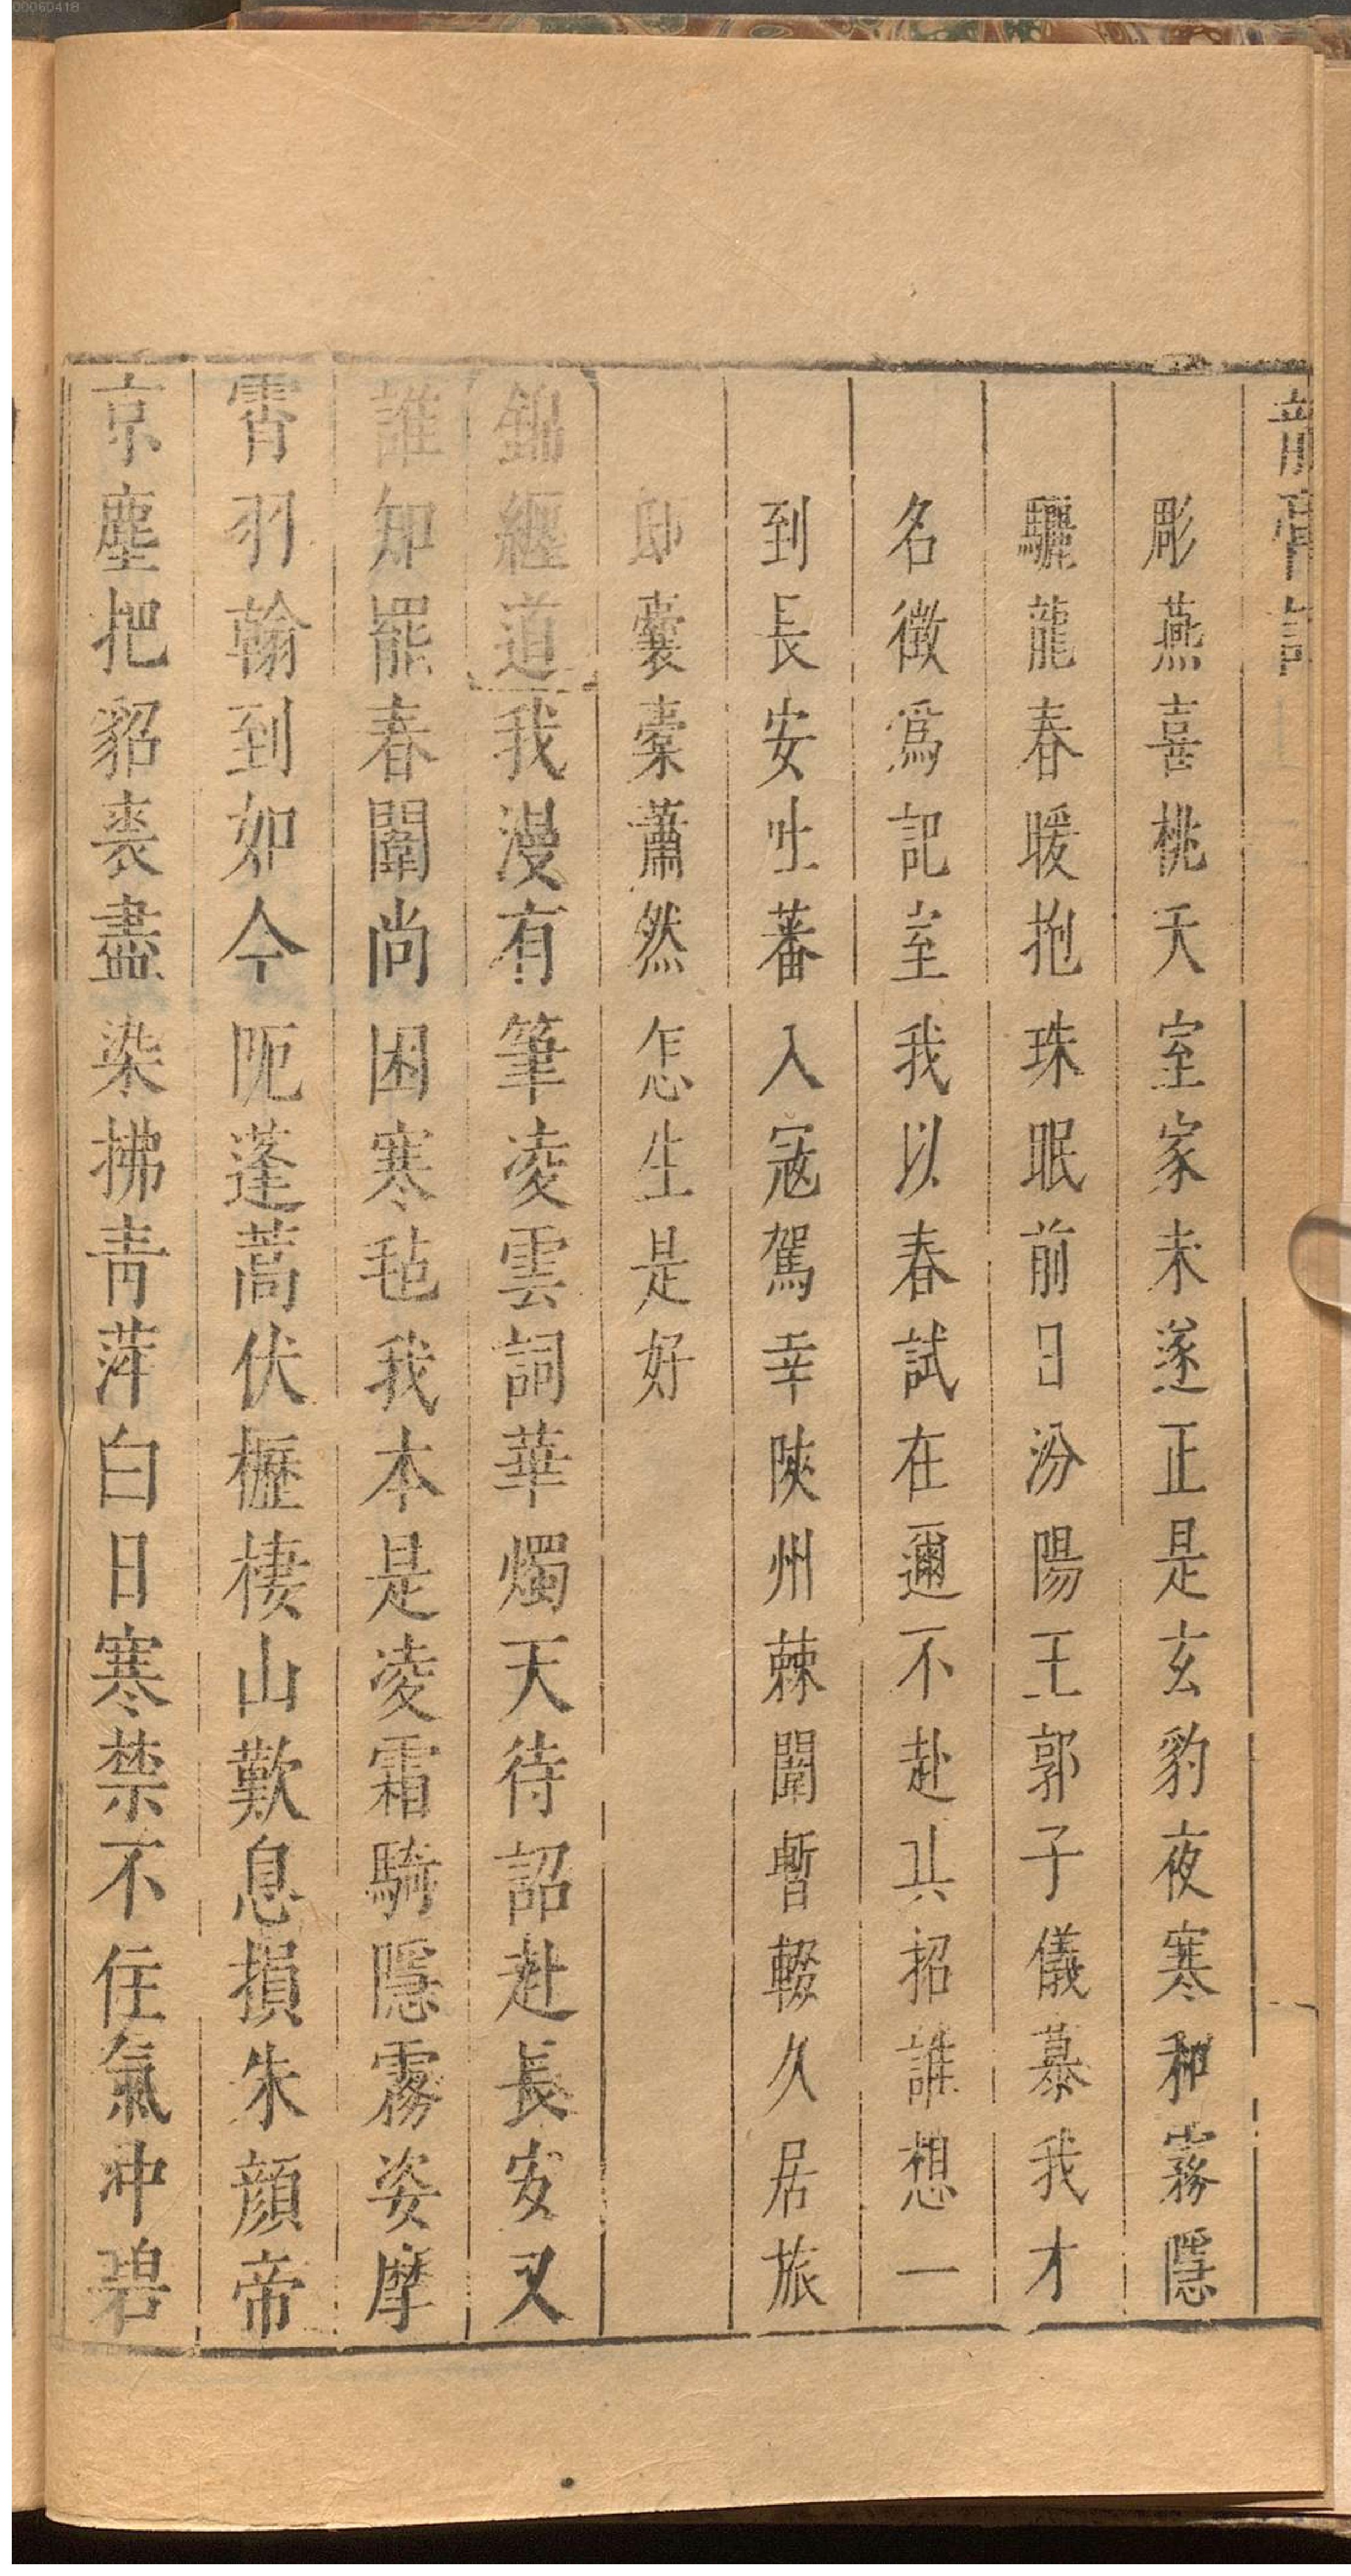 龍膏記
彫燕喜桃夭室家未遂正是玄豹夜寒和霧隱
驪龍春暖抱珠眠前日汾陽王郭子儀慕我才
名徵爲記室我以春試在邇不赴其招誰想一
到長安吐蕃入寇駕幸陝州棘闈暫輟久居旅
邸囊橐蕭然怎生是好
錦纏道我漫有筆凌雲詞華燭天待詔赴長安又
誰知罷春闈尚困寒毡我本是凌霜騎隱霧姿摩
霄羽翰到如今阨蓬蒿伏櫪棲山歎息損朱顔帝
京塵把貂裘盡染拂青萍白日寒禁不住氣冲碧
00060418